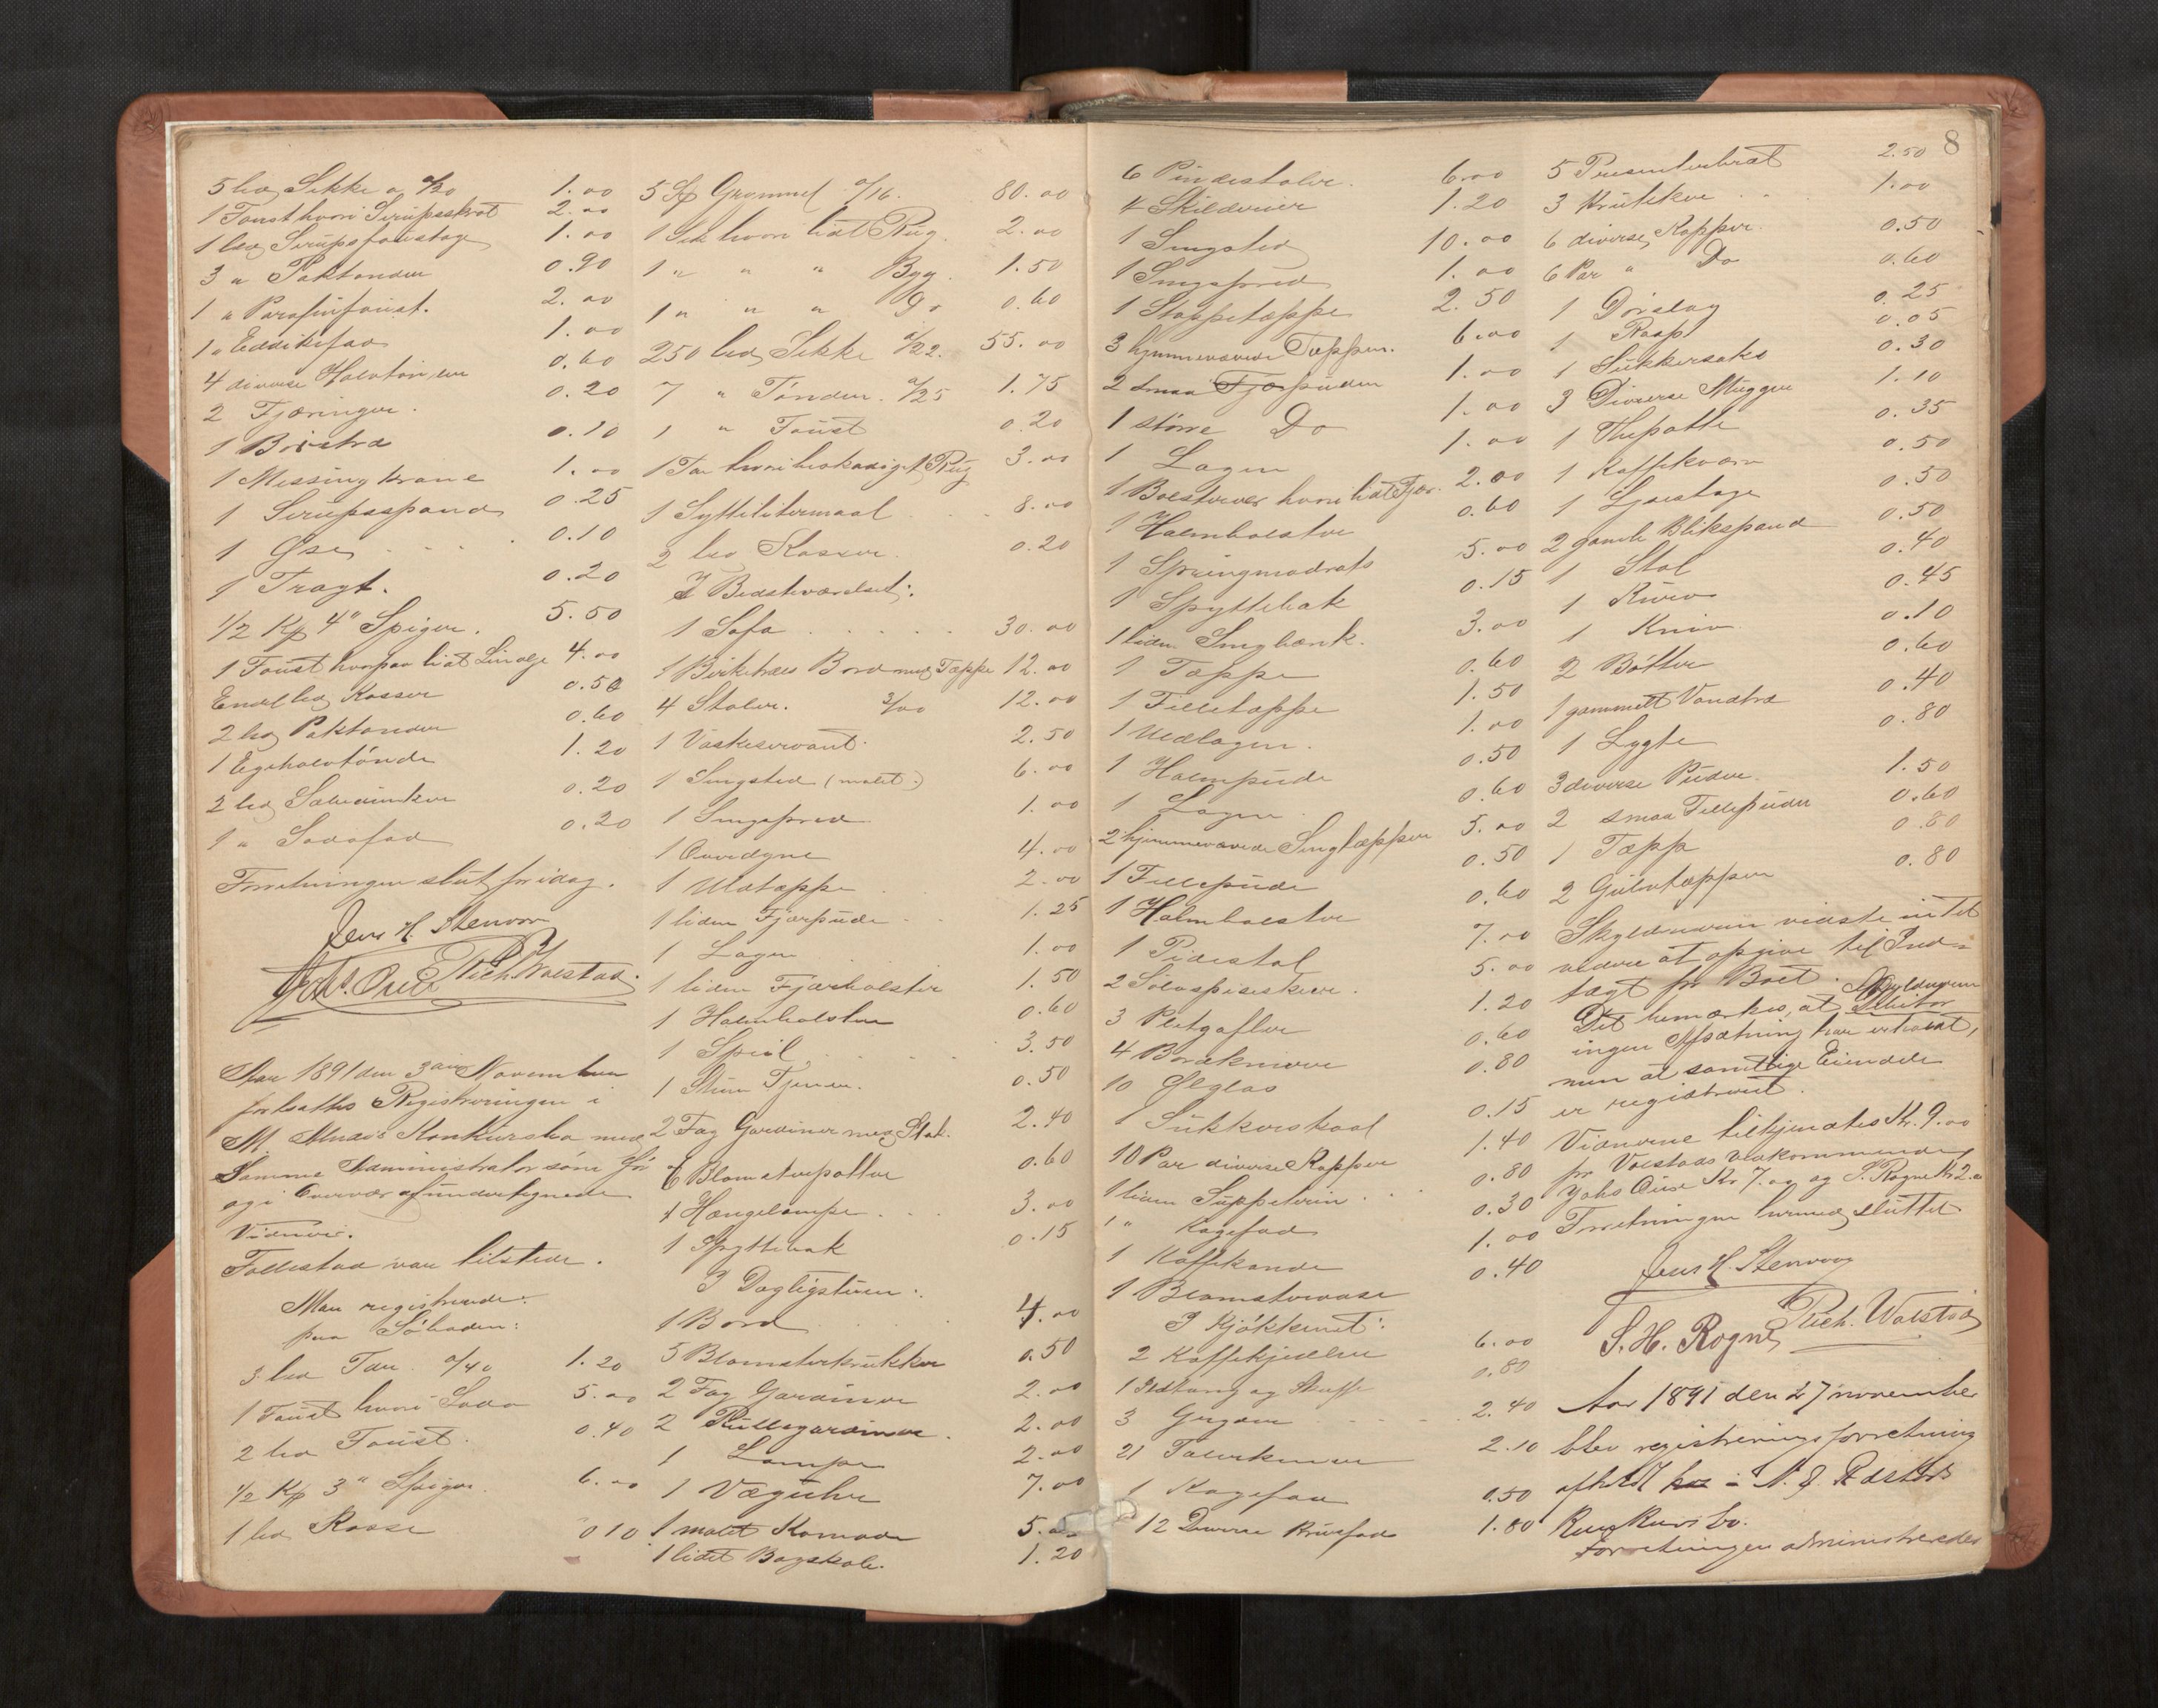 5 led Sække a 0/20 1.00
1 Foust hvori Sirupsskrot 2.00
1 led Sirupsfoustage 1.00
3 " Paktønder 0.90
1 " Parafinfoust. 2.00
1 " Eddikefad 1.00
4 diverse Halvtønder 0.60
2 Fjæringer. 0.20
1 Bøistræ 0.10
1 Messingkrane 1.00
1 Sirupsspand 0.25
1 Øse 0.10
1 Tragt. 0.20
1/2 Kp 4" Spiger. 5.50
1 Foust hvorpaa lidt Linolje 4.00
Endel led Kasser 0.50
2 led Paktønder 0.60
1 Egehalvtønde 1.20
2 led Saltdunker 0.20
1 " Sodafad 0.20
Forretningen slut for idag.
Jens H. Stenvaag
Rich. Walstad.
Aar 1891 den 3die November
fortsattes Registreringen i
M. Konkursbo med
Samme Administrator som før
og i Overvær af undertegnede
Vidner.
Follestad var tilstede.
Man registrerede:
paa Søboden:
3 led Tdr. a/40 1.20
1 Foust hvori Soda 5.00
2 led Foust. 0.40
1/2 Kp 3" Spiger. 6.00
1 led Kasse 0.10
5 Grynmel a/16. 80.00
1 Sæk hvori lidt Rug 2.00
1 " " " Byg. 1.50
1 " " " Do 0.60
250 led Sække 0/22. 55.00
7 " Tønder. 0/25 1.75
1 " Foust 0.20
1 Tdr hvori beskadiget Rug 3.00
1 Syttelitermaal 8.00
2 led Kasser. 0.20
I Bedsteværelset:
1 Sofa 30.00
1 Birketræs Bord med Tæppe 12.00
4 Stoler. 3/00 12.00
1 Vaskeservant. 2.50
1 Sengsted (malet.) 6.00
1 Sengspred 1.00
1 Overdyne 4.00
1 Uldtæppe 2.00
1 liden Fjærpude 1.25
1 Lagen 1.00
1 liden Fjærbolster 1.50
1 Halmbolster 0.60
1 Speil 3.50
1 Stum Tjener. 0.50
2 Fag Gardiner med Stat. 2.40
6 Blomsterpotter 0.60
1 Hængelampe. 3.00
1 Spyttebak 0.15
I Dagligstuen:
1 Bord 4.00
5 Blomsterkrukker 0.50
2 Fag Gardiner 2.00
2 Rullegardiner. 2.00
1 Lampe 2.00
1 Vægguhr 7.00
1 malet Komode 5.00
1 lidet Bogskab. 1.20
8
6 Pindestoler. 6.00
4 Skilderier 1.20
1 Sengsted 10.00
1 Sengspred 1.00
1 Stoppetæppe 2.50
3 hjemmevævede Tæpper. 6.00
2 smaa Fjærpuder 1.00
1 større Do 1.00
1 Lagen 1.00
1 Bolstervar hvori lidt Fjær. 2.00
1 Halmbolster 0.60
1 Springmadrats 5.00
1 Spyttebak 0.15
1 liden Sengbænk. 3.00
1 Tæppe 0.60
1 Filletæppe 1.50
1 Uldlagen. 1.00
1 Halmpude 0.50
1 Lagen. 0.60
2 hjemmevævede Sengtæpper 5.00
1 Fillepude 0.50
1 Halmbolster 0.60
1 Pidestal 7.00
2 Sølvspiseskeer. 5.00
3 Pletgafler 1.20
4 Bordknive 0.60
10 Ølglas 0.80
1 Sukkerskaal 0.15
10 Par diverse Kopper 1.40
1 liden Suppeterin 0.80
1 " Kagefad 0.30
1 Kaffekande 1.00
1 Blomstervase 0.40
I Kjøkkenet:
2 Kaffekjedler 6.00
1 Ildtang og Skuffe 0.80
3 Gryder 2.40
21 Tallerkener 2.10
1 Kagefad 0.50
12 Diverse Brusfade 1.80
5 Presenterbræt 2.50
3 Krukker 1.00
6 diverse Kopper. 0.50
6 Par " Do 0.60
1 Dørslag 0.25
1 Rasp 0.05
1 Sukkersaks 0.30
3 Diverse Mugger 1.10
1 Thepotte 0.35
1 Kaffekværn 0.50
1 Lysestage 0.50
2 gamle Blikspand 0.50
1 Stol 0.40
1 Kurv 0.45
1 Kniv 0.10
2 Bøtter 0.60
1 gammelt Vandtræ 0.40
1 Lygte 0.80
3 diverse Puder. 1.50
2 smaa Fillepuder 0.60
1 Tæppe 0.80
2 Gulvtæpper 0.80
Skyldneren vidste intet
videre at opgive til Ind-
tægt for Boet.
Det bemærkes, at Skyldneren
ingen Afsætning har erholdt,
men at samtlige Eiendele
er registreret.
Vidnerne tilkjendtes Kr. 9.00
for Volstads vedkommende
Johs Kr 7.00 og S. Rogne Kr 2.00
Forretningen hermed sluttet
Jens H. Stenvaag
Rich. Walstad
S. H. Rogne
Aar 1891 den 27 november
blev registreringsforretning
afholdt i N. J.
Konkursbo.
Forretningen administreredes